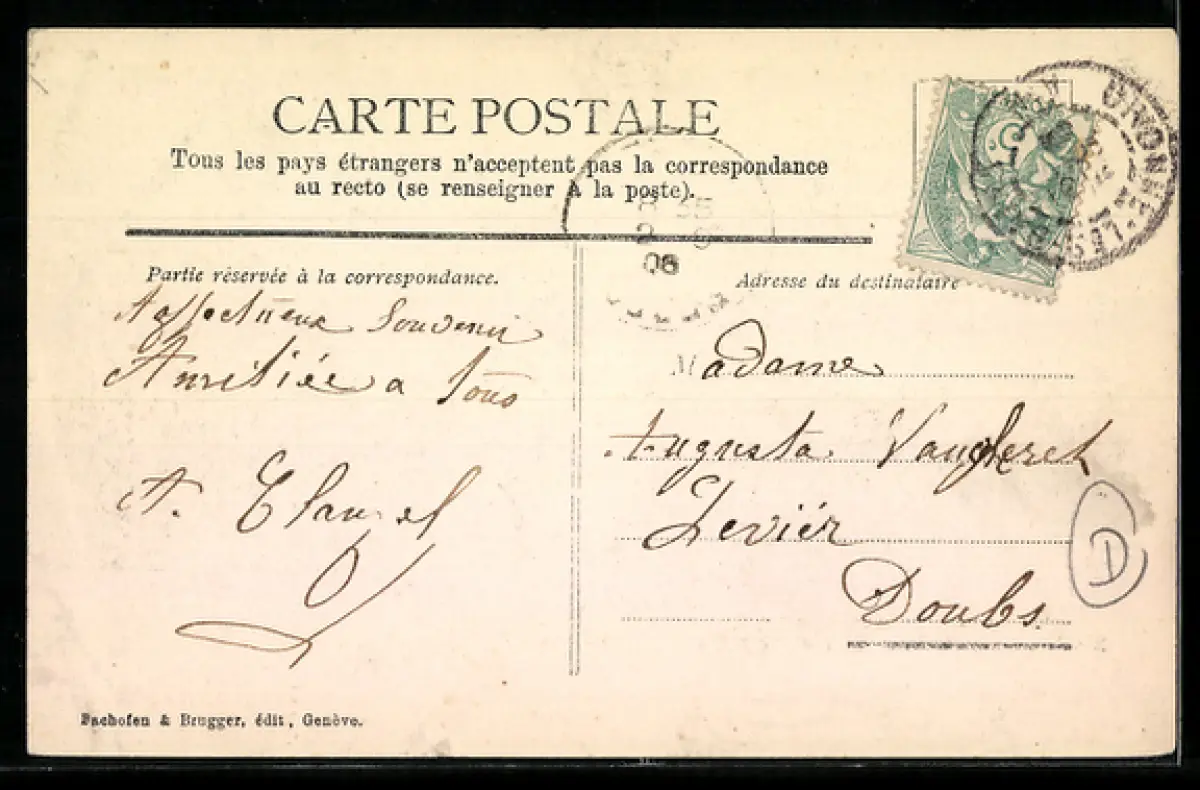 CARTE POSTALE
Tous les pays étrangers n'acceptent pas la correspondance
au recto (se renseigner à la poste).
Partie réservée à la correspondance.
Affectueux Souvenir
Amitiée a Tous
A.
Adresse du destinataire
Madame
Augusta
Levier
Doubs
D
08
5
Bachofen & Brugger, édit, Genève.